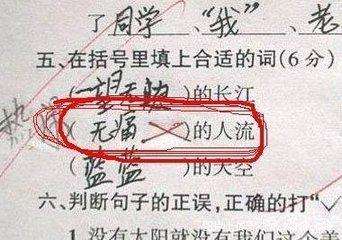 了同学、“我”、老
五、在括号里填上合适的词(6分)
(一望无际)的长江
(无痛)的人流
(蓝蓝)的天空
六、判断句子的正误,正确的打“✓
1.没有太阳就没有我们这个美